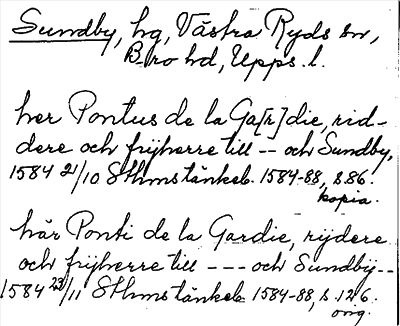 Sundby, hg, Västra Ryds sn,
B-ro hd, Upps. l.
her Pontus de la Ga[r]die, rid-
dere och frijherre till -- och Sundby,
1584 21/10 Sthms tänkeb. 1584-88, s. 86.
kopia.
här Ponti de la Gardie, rijdere
och frijherre till --- och Sundbÿ--
1584 23/11 Sthms tänkeb. 1584-88, s. 126.
orig.